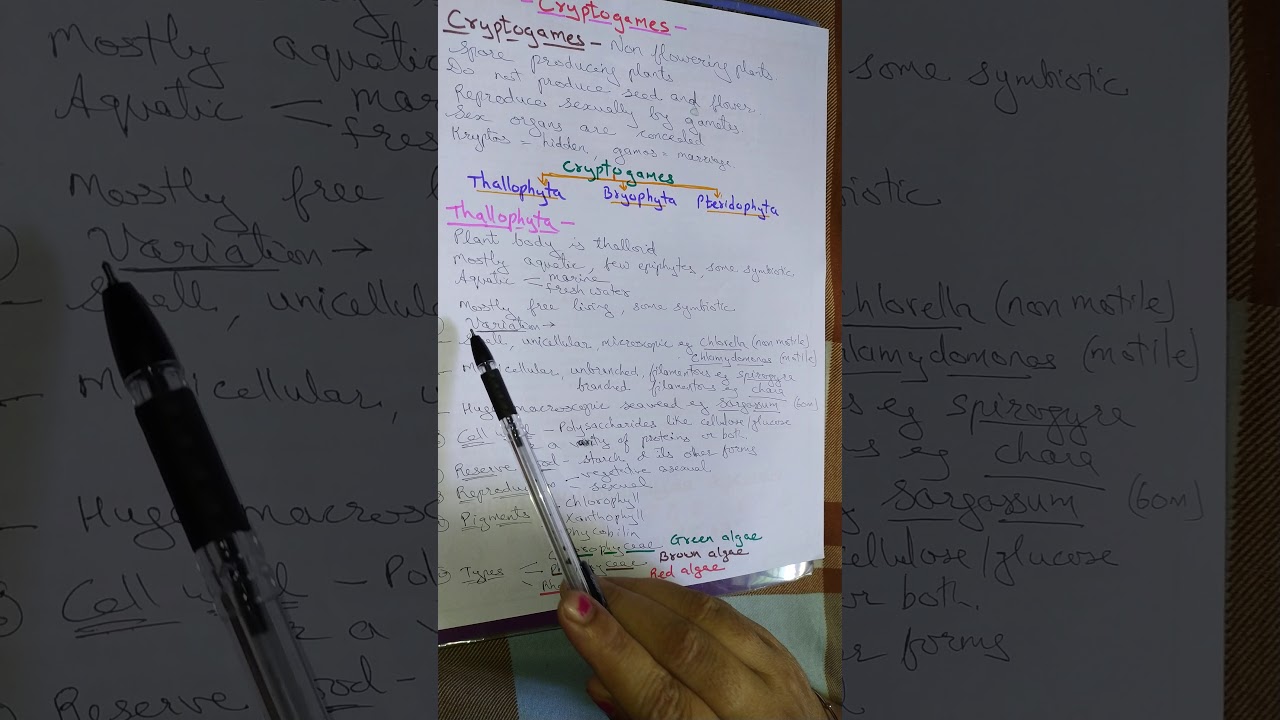 - Cryptogames -
Cryptogames - Non flowering plants.
Spore producing plants
Do not produce seed and flower.
Reproduce sexually by gametes.
Sex organs are concealed
Kryptos = hidden, gamos = marriage.
Cryptogames
Thallophyta Bryophyta Pteridophyta
Thallophyta -
Plant body is thalloid
Mostly aquatic, few epiphytes, some symbiotic
Aquatic - marine
fresh water
Mostly free living, some symbiotic
Variation →
Small, unicellular, microscopic eg Chlorella (non motile)
Chlamydomonas (motile)
cellular, unbranched, filamentous eg spirogyra
branched filamentous eg chara
Huge macroscopic seaweed eg Sargassum (60m)
Cell - Polysaccharides like cellulose/glucose
of proteins or both.
Reserve - starch & its other forms
- vegetative asexual
- sexual
chlorophyll
Pigments Xanthophyll
phycobilin
ceae Green algae
Types ceae Brown algae
Red algae